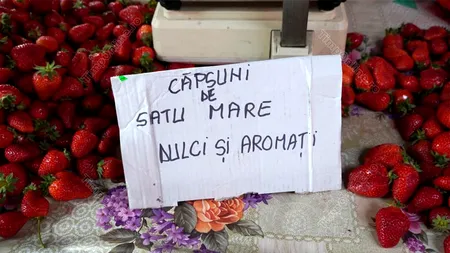 CĂPȘUNI
DE
SATU MARE
DULCI ȘI AROMAȚI